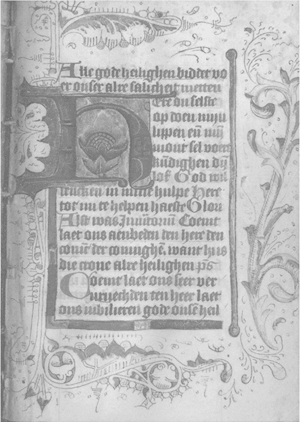 Alle gods heilighen biddet vo
er onser alre salicheit
Here du selste
op doen mijn
lippen en mijn
mont sel
kundighen dij
lof God wil
trucken in mine hulpe Here
tot mi te helpen haeste Glori
Alst was Coemt
laet ons aenbeden den here den
der coninghe want hij is
die crone alre heilighen ps
Coemt laet ons seer ver
den here laet
ons iubilieren gode onse heil